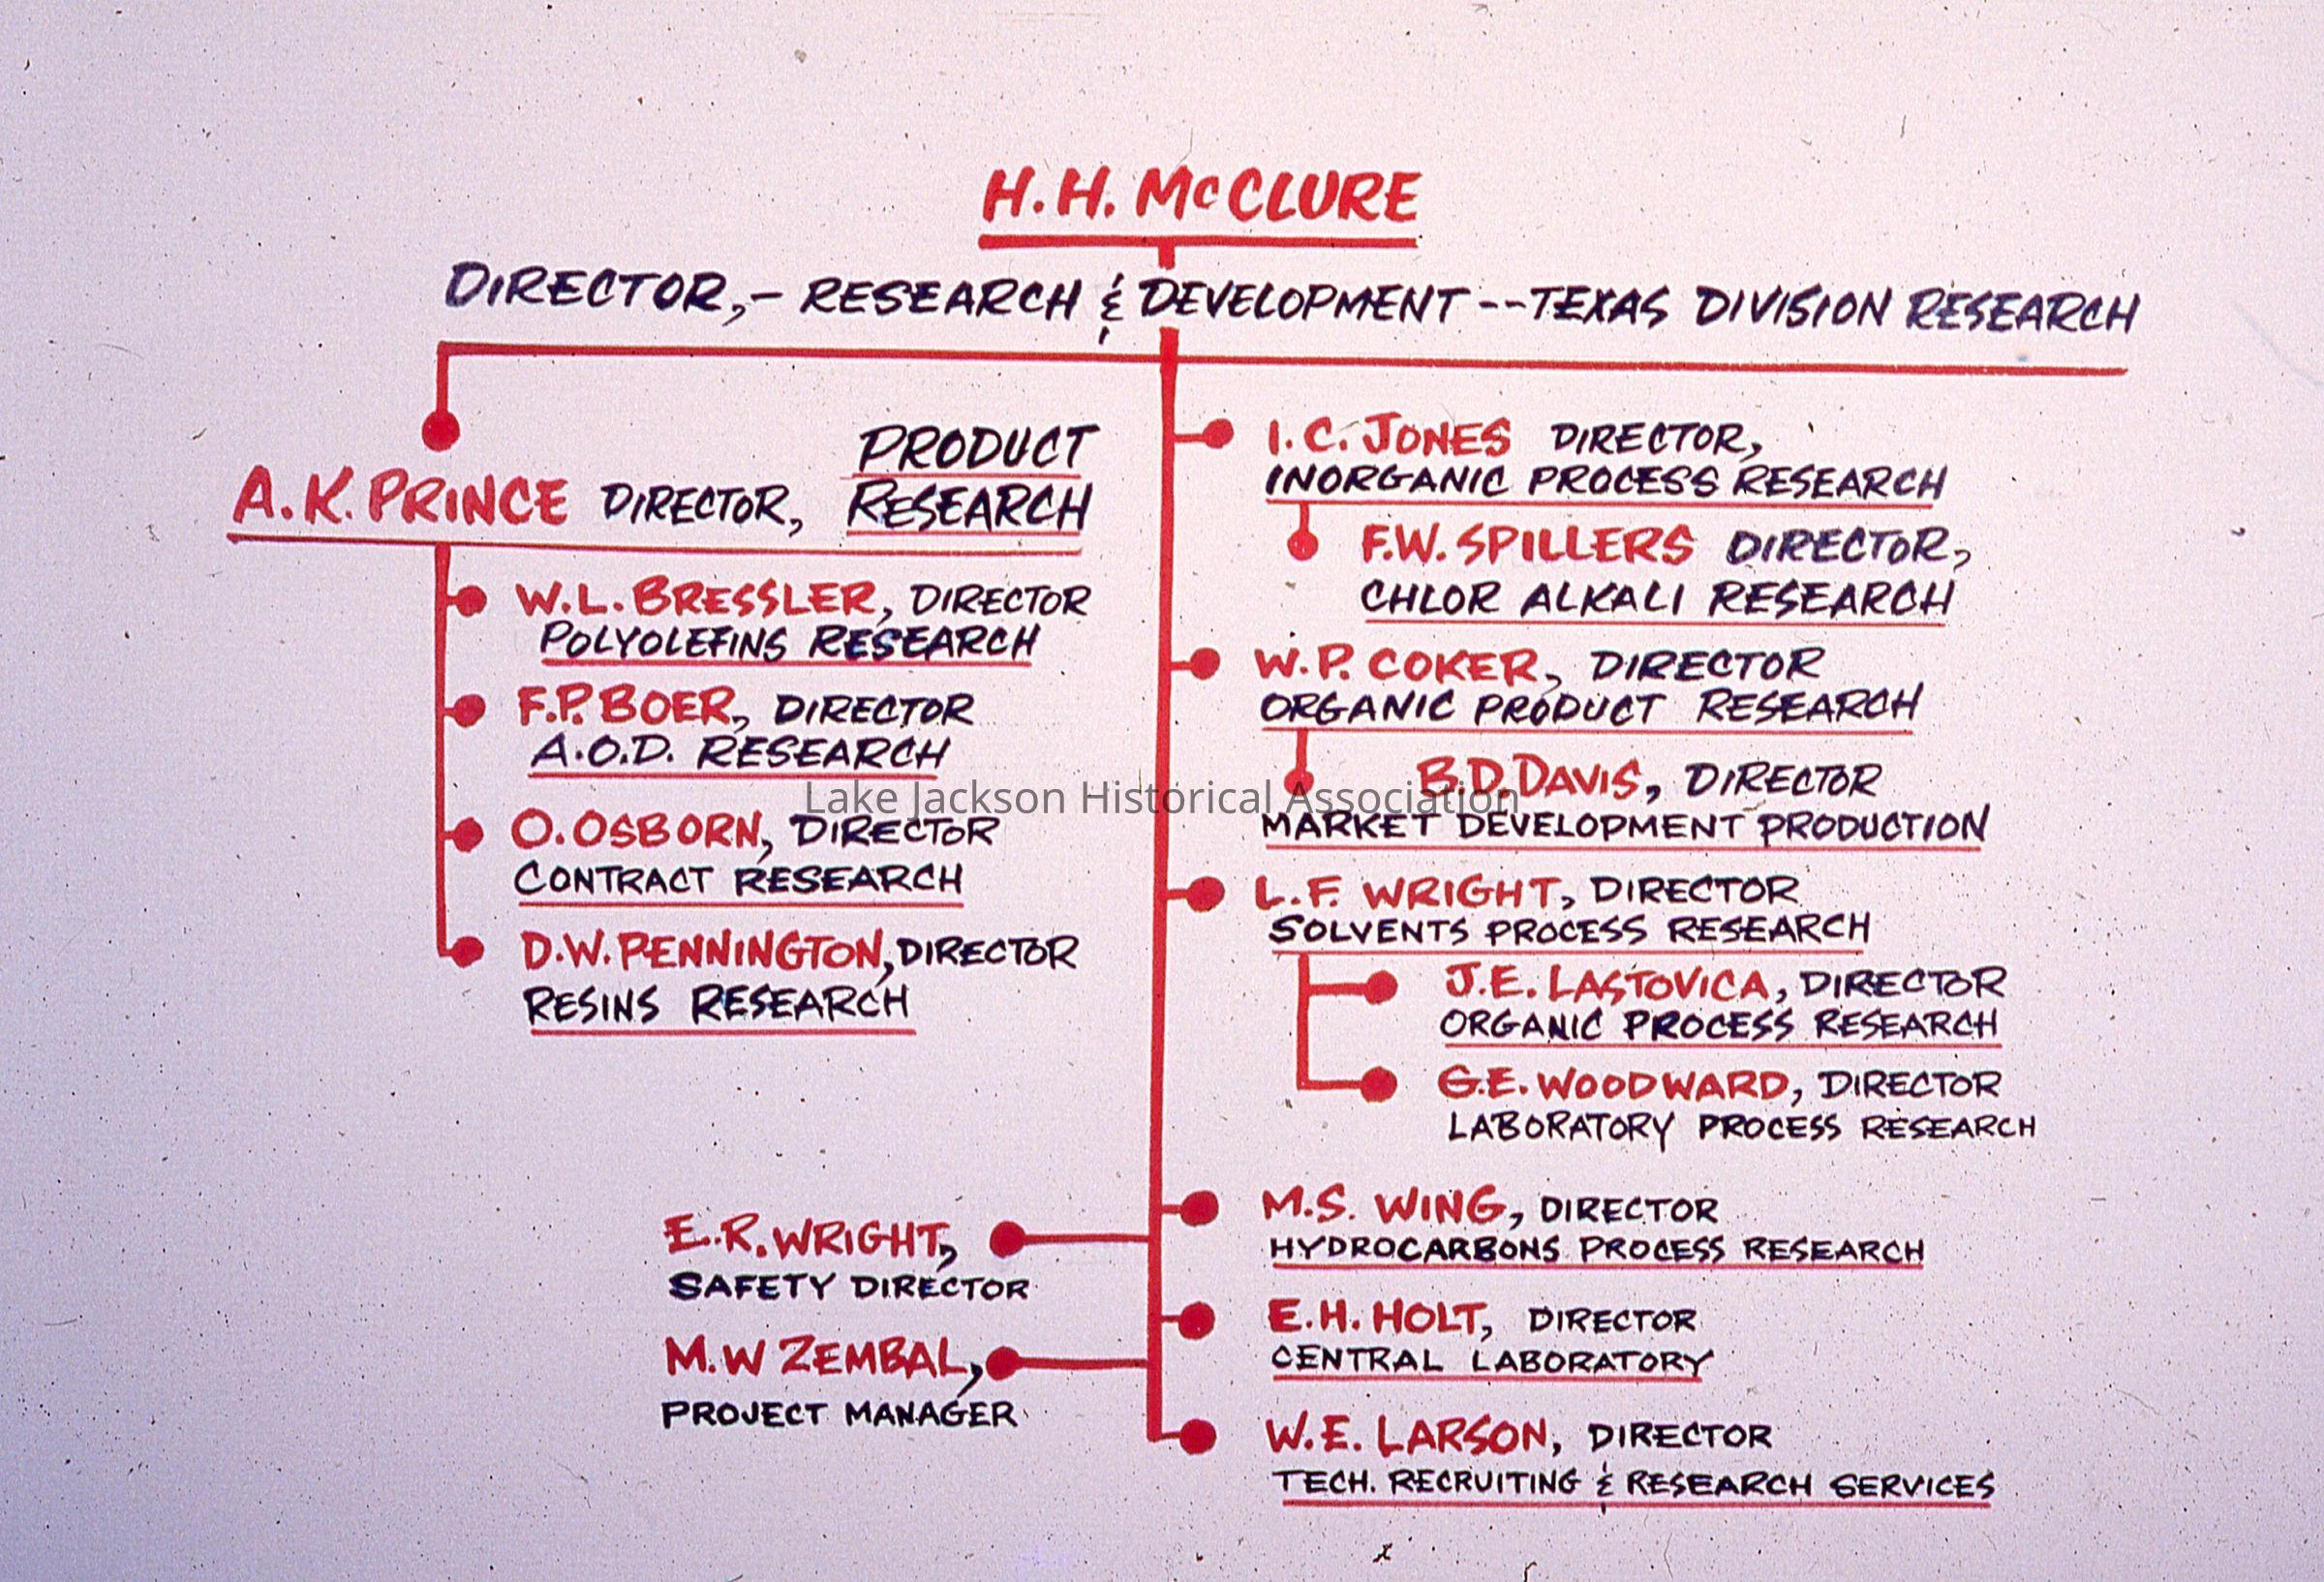 H.H. McCLURE
DIRECTOR,- RESEARCH & DEVELOPMENT--TEXAS DIVISION RESEARCH
A.K. PRINCE DIRECTOR, PRODUCT
RESEARCH
W.L. BRESSLER, DIRECTOR
POLYOLEFINS RESEARCH
F.P. BOER, DIRECTOR
A.O.D. RESEARCH
O. OSBORN, DIRECTOR
CONTRACT RESEARCH
D.W. PENNINGTON, DIRECTOR
RESINS RESEARCH
I.C. JONES DIRECTOR,
INORGANIC PROCESS RESEARCH
F.W. SPILLERS DIRECTOR,
CHLOR ALKALI RESEARCH
W.P. COKER, DIRECTOR
ORGANIC PRODUCT RESEARCH
B.D. DAVIS, DIRECTOR
Lake Jackson Historical Association
MARKET DEVELOPMENT PRODUCTION
L.F. WRIGHT, DIRECTOR
SOLVENTS PROCESS RESEARCH
J.E. LASTOVICA, DIRECTOR
ORGANIC PROCESS RESEARCH
G.E. WOODWARD, DIRECTOR
LABORATORY PROCESS RESEARCH
E.R. WRIGHT,
SAFETY DIRECTOR
M.W ZEMBAL,
PROJECT MANAGER
M.S. WING, DIRECTOR
HYDROCARBONS PROCESS RESEARCH
E.H. HOLT, DIRECTOR
CENTRAL LABORATORY
W.E. LARSON, DIRECTOR
TECH. RECRUITING & RESEARCH SERVICES